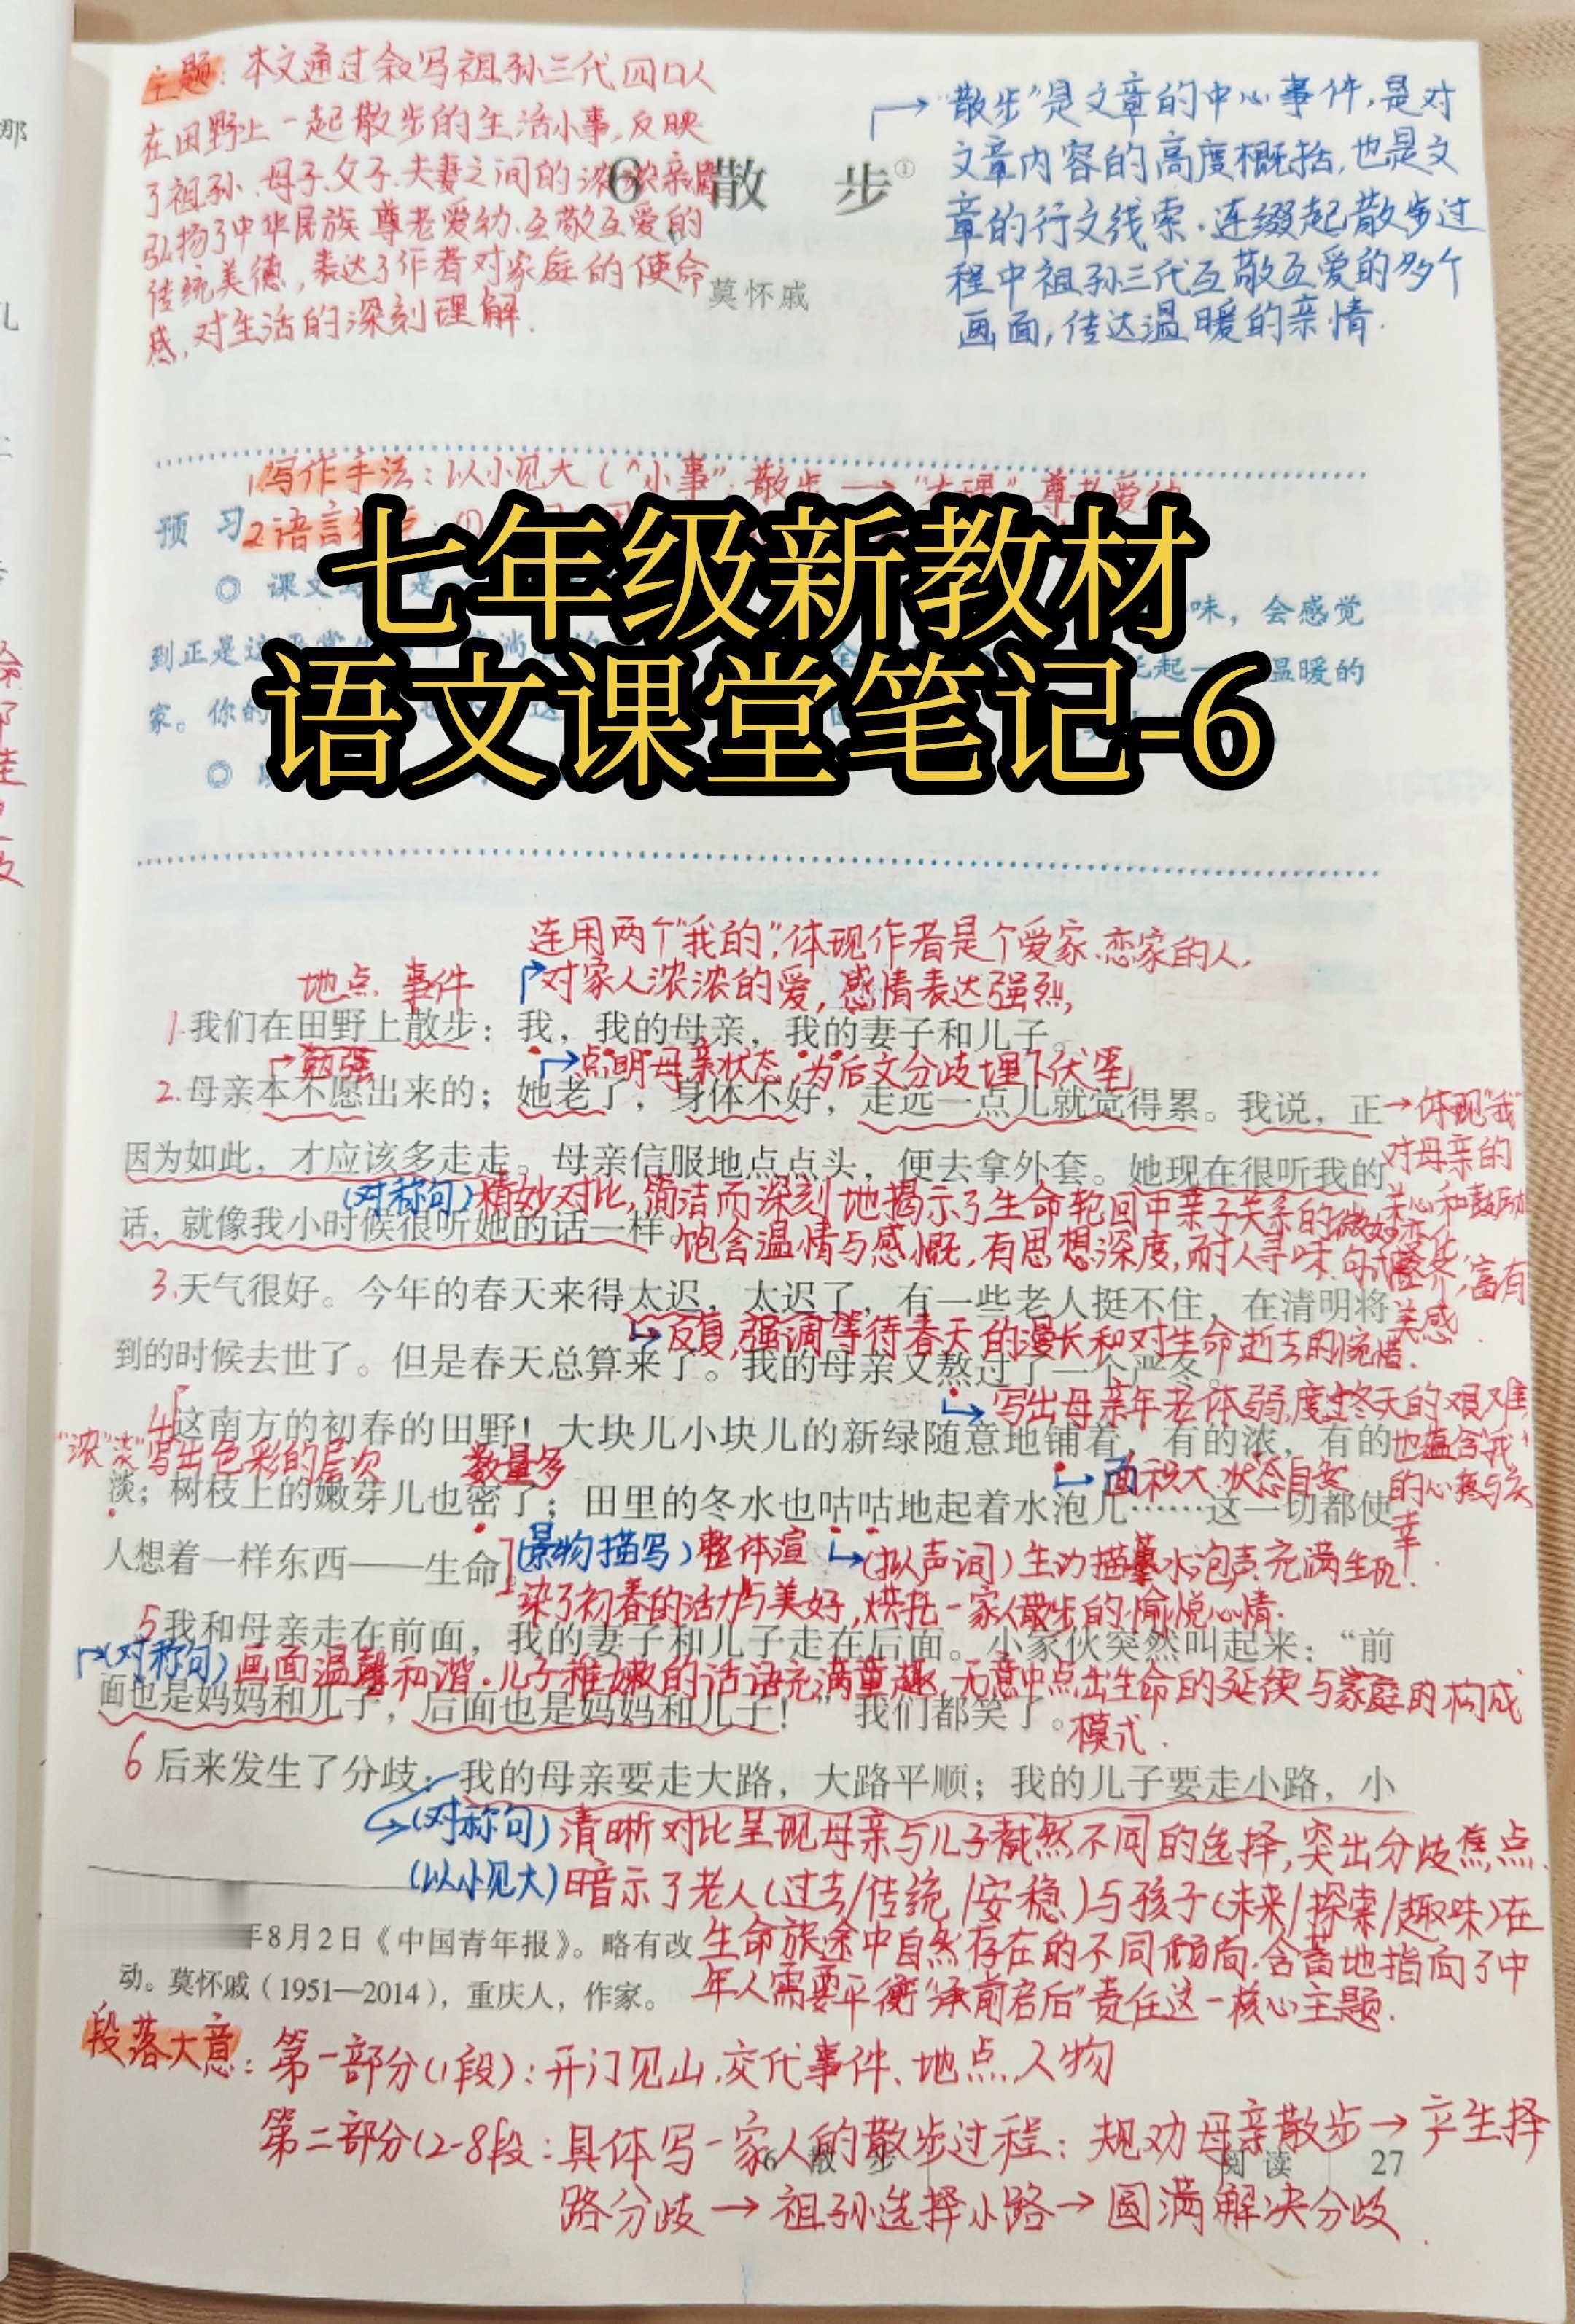 主题：本文通过叙写祖孙三代四口人
在田野上一起散步的生活小事，反映
了祖孙、母子、父子、夫妻之间的浓浓亲情
弘扬了中华民族尊老爱幼、互敬互爱的
传统美德，表达了作者对家庭的使命
感，对生活的深刻理解.
"散步"是文章的中心事件,是对
文章内容的高度概括,也是文
章的行文线索.连缀起散步过
程中祖孙三代互敬互爱的多个
画面,传达温暖的亲情.
6 散 步①
莫怀戚
1.写作手法：以小见大（"小事"：散步→"大理"尊老爱幼
预 习
2.语言特点
七年级新教材
语文课堂笔记-6
◎ 课文
味，会感觉
到正是这
起一
温暖的
家。你的
◎
连用两个"我的",体现作者是个爱家、恋家的人,
地点 事件 对家人浓浓的爱，感情表达强烈,
1.我们在田野上散步：我，我的母亲，我的妻子和儿子。
勉强 点明母亲状态,为后文分歧埋下伏笔
2.母亲本不愿出来的；她老了，身体不好，走远一点儿就觉得累。我说，正
因为如此，才应该多走走。母亲信服地点点头，便去拿外套。她现在很听我的
话，就像我小时候很听她的话一样。
体现"我"
对母亲的
关心和鼓励
(对称句)精妙对比,简洁而深刻地揭示了生命轮回中亲子关系的微妙变化
饱含温情与感慨,有思想深度,耐人寻味.句式整齐,富有
美感.
3.天气很好。今年的春天来得太迟，太迟了，有一些老人挺不住，在清明将
反复,强调等待春天的漫长和对生命逝去的惋惜.
到的时候去世了。但是春天总算来了。我的母亲又熬过了一个严冬。
写出母亲年老体弱,度过冬天的艰难
也蕴含"我"
的心疼与庆
幸.
4这南方的初春的田野！大块儿小块儿的新绿随意地铺着，有的浓，有的
"浓""淡"写出色彩的层次 数量多 面积大,状态自然
淡；树枝上的嫩芽儿也密了；田里的冬水也咕咕地起着水泡儿……这一切都使
人想着一样东西——生命。
(景物描写)整体渲
染了初春的活力与美好,烘托一家人散步的愉悦心情.
(拟声词)生动描摹水泡声,充满生机!
5我和母亲走在前面，我的妻子和儿子走在后面。小家伙突然叫起来：“前
(对称句)画面温馨和谐.儿子稚嫩的话语充满童趣,无意中点出生命的延续与家庭的构成
模式.
面也是妈妈和儿子，后面也是妈妈和儿子！”我们都笑了。
6后来发生了分歧：我的母亲要走大路，大路平顺；我的儿子要走小路，小
(对称句)清晰对比呈现母亲与儿子截然不同的选择,突出分歧焦点.
(以小见大)暗示了老人(过去/传统/安稳)与孩子(未来/探索/趣味)在
生命旅途中自然存在的不同倾向.含蓄地指向了中
年人需要平衡"承前启后"责任这一核心主题.
年8月2日《中国青年报》。略有改
动。莫怀戚（1951—2014），重庆人，作家。
段落大意：第一部分(1段)：开门见山,交代事件、地点、人物
第二部分(2-8段：具体写一家人的散步过程：规劝母亲散步→产生择
路分歧→祖孙选择小路→圆满解决分歧.
6 散 步
阅 读 27